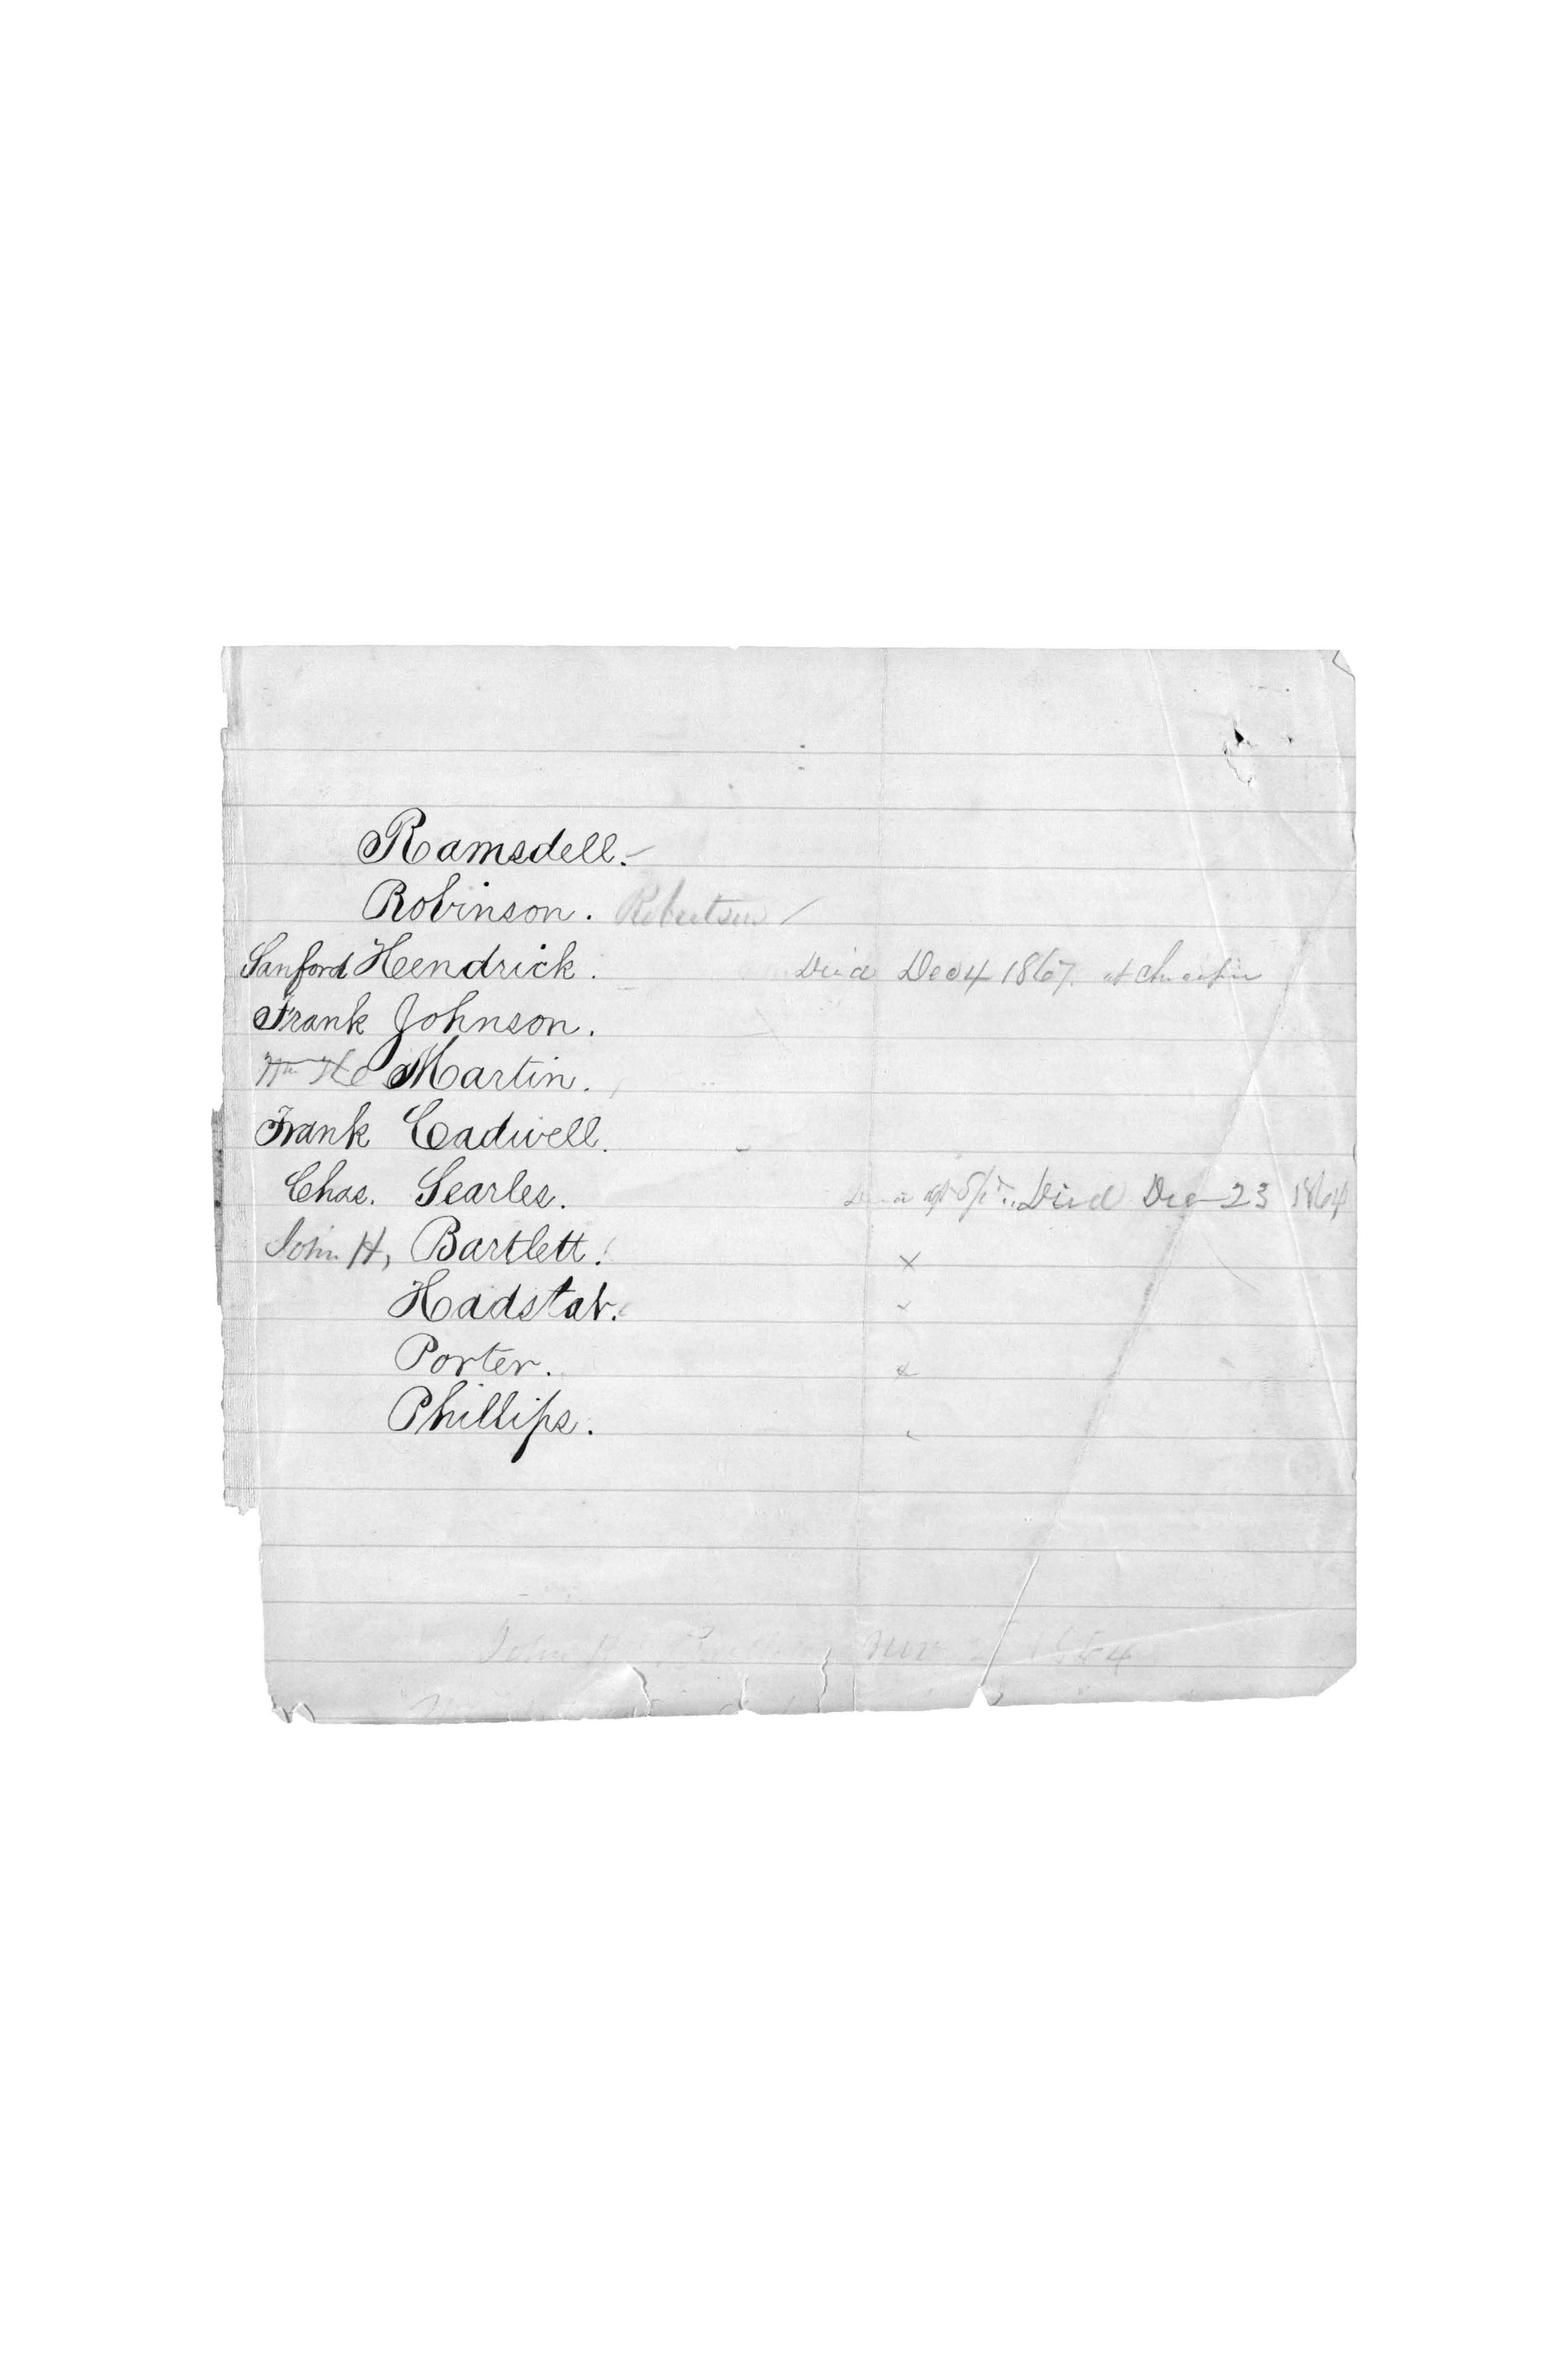 Ramsdell.
Robinson. Robertson
Sanford Hendrick. Died Dec 4 1867. at
Frank Johnson.
Wm H Martin.
Frank Cadwell.
Chas. Searles. Died Dec 23 1864
John H, Bartlett. x
Hadstat.
Porter. x
Phillips.
John Nov 1864